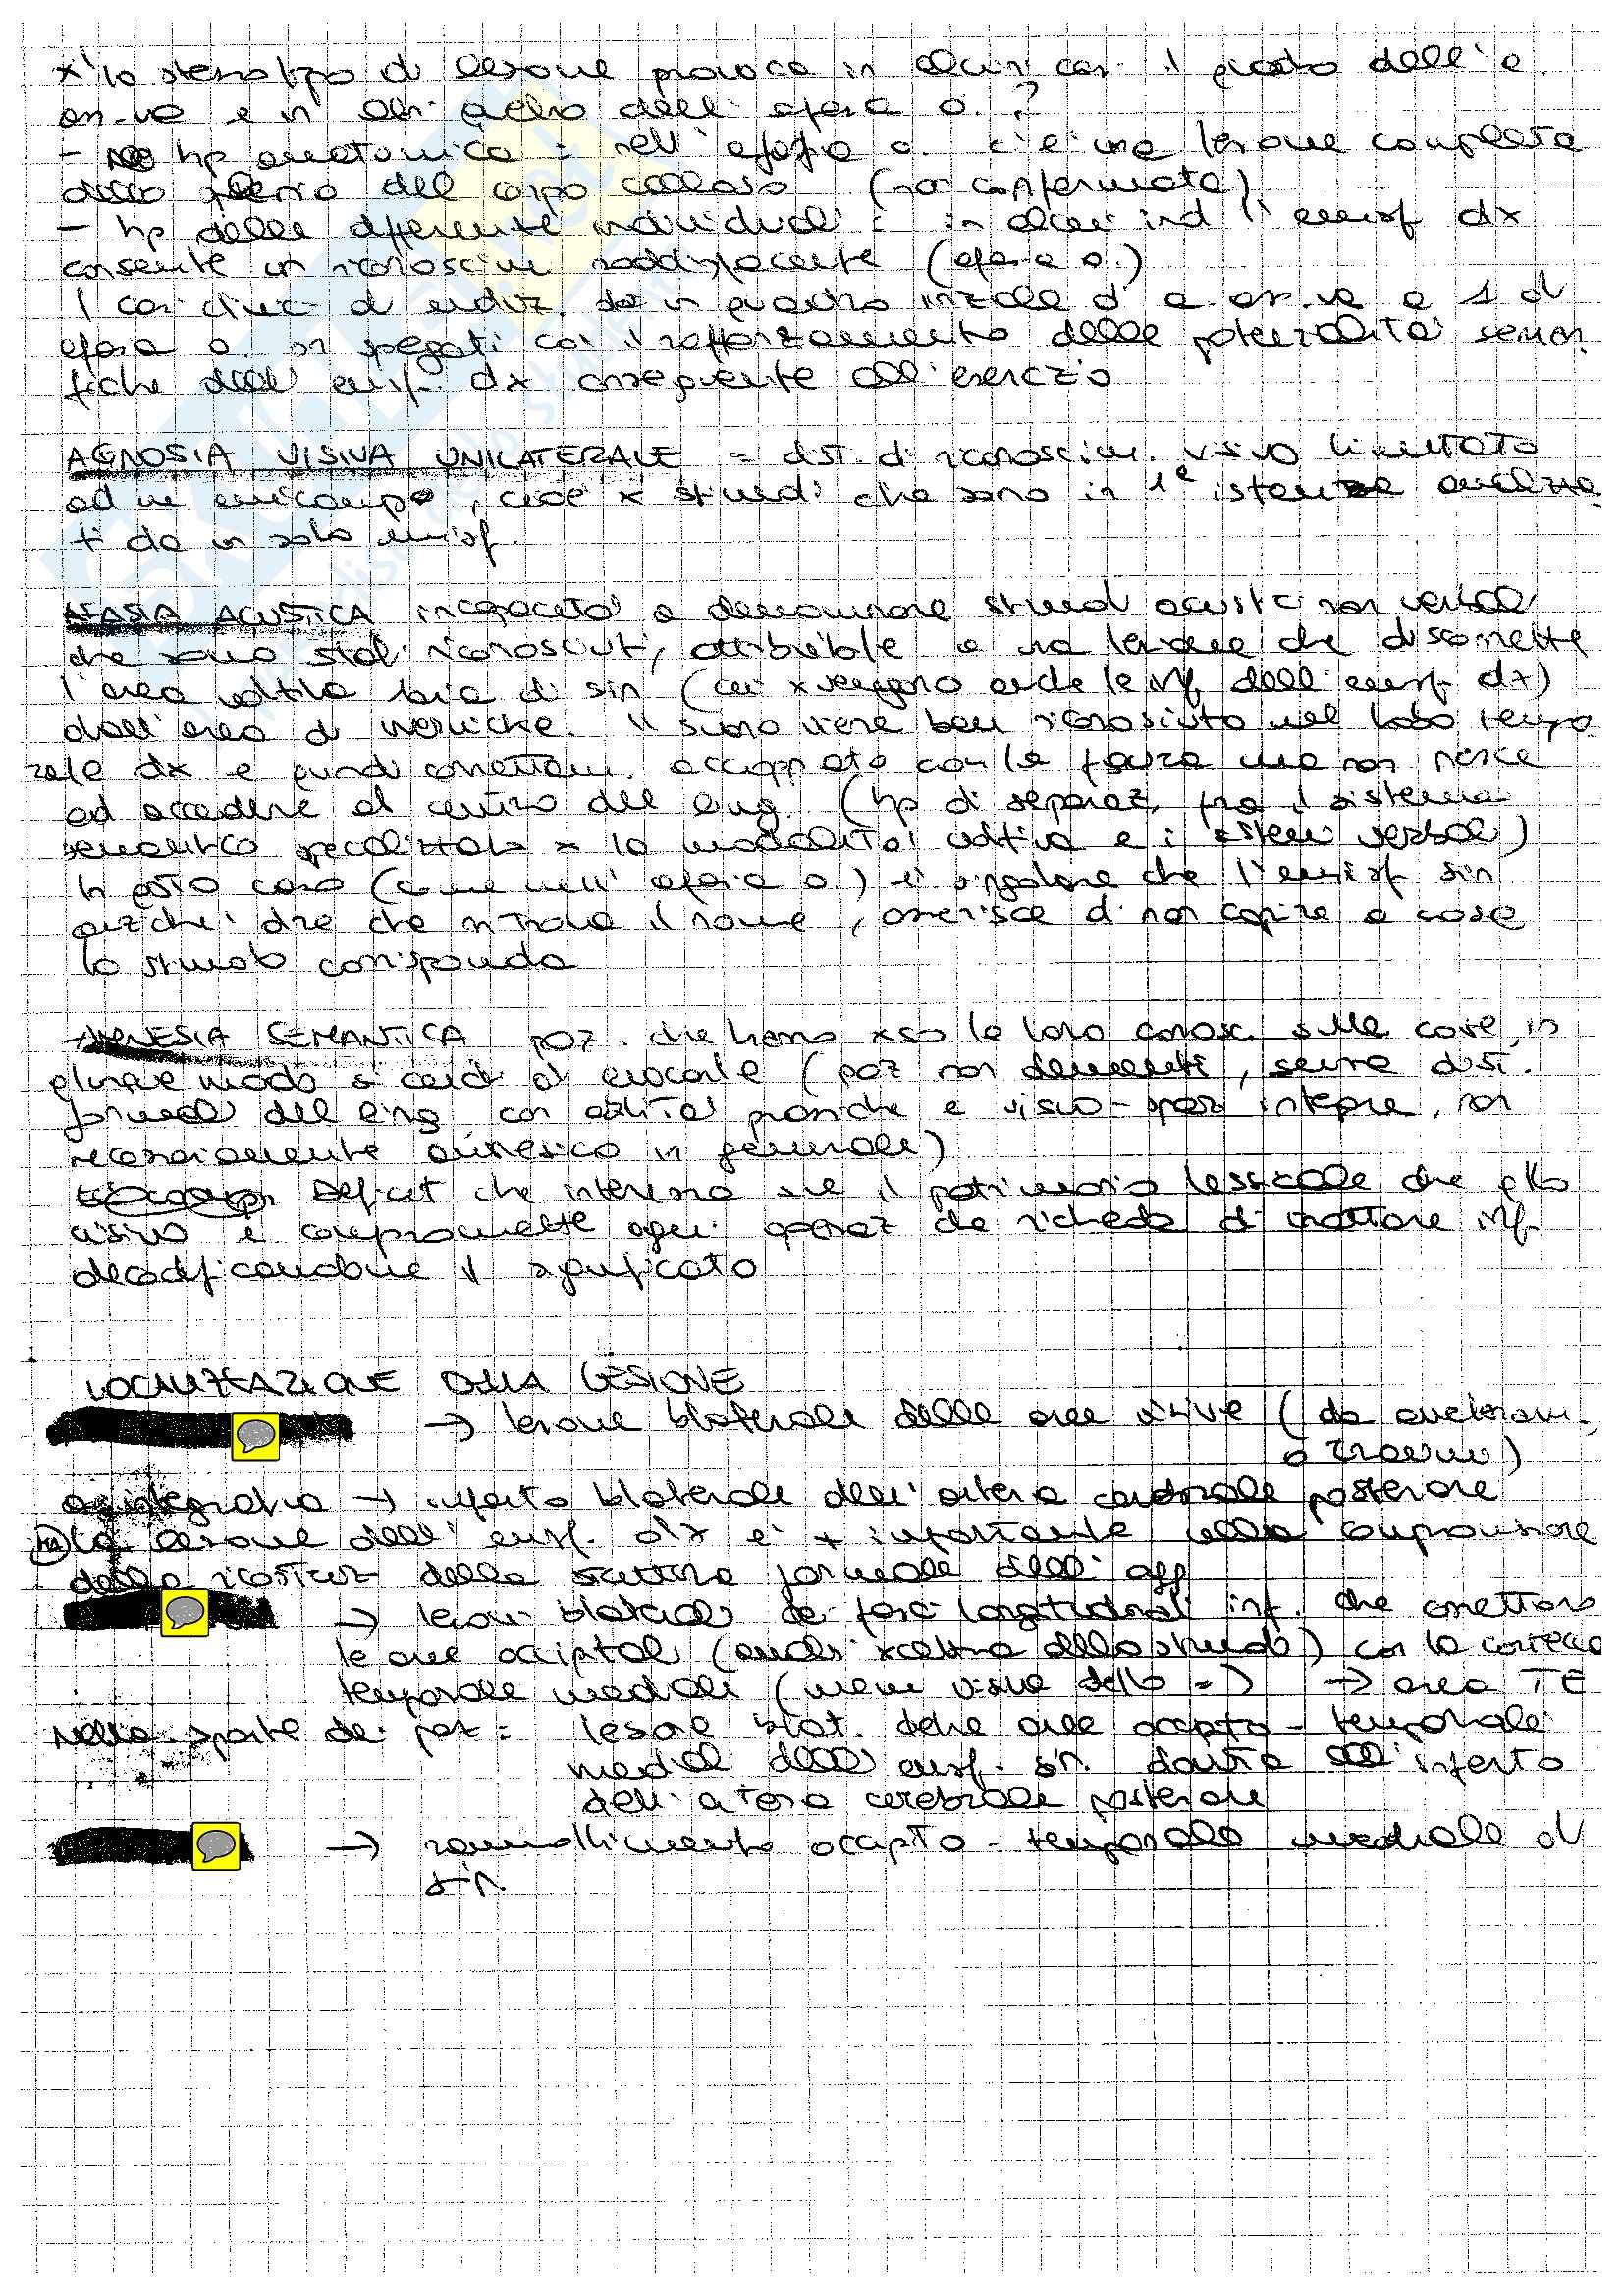 x' lo stesso tipo di lesione provoca in alcuni casi il quadro dell'a.
ass-va e in altri quadro dell'afasia o.?
- hp anatomica = nell'afasia o. c'è una lesione completa
dello splenio del corpo calloso (non confermata)
- hp delle differenze individuali: in alcuni ind l'emisf dx
consente un riconoscim soddisfacente (afasia o.)
I casi clinici di evoluz. da un quadro iniziale d' a. ass-va a 1 di
afasia o. sn spiegati con il rafforzamento delle potenzialità seman
tiche dell' emisf. dx conseguente all'esercizio
AGNOSIA VISIVA UNILATERALE = dist. di riconoscim. visivo limitato
ad un emicampo, cioè x stimoli che sono in 1ª istanza analizza
ti da un solo emisf.
AFASIA ACUSTICA incapacità a denominare stimoli acustici non verbali
che sono stati riconosciuti, attribuibile a una lesione che disconnette
l'area uditiva di sin (cui xvengono anche le inf. dell'emisf. dx)
dall'area di Wernicke. Il suono viene ben riconosciuto nel lobo tempo
rale dx e quindi correttam. accoppiato con la figura ma non riesce
ad accedere al centro del ling. (hp di separaz. fra il sistema
semantico specializzato x la modalità uditiva e i sistemi verbali)
In qsto caso (come nell' afasia o.) è singolare che l'emisf sin
anzichè dire che nn trova il nome, asserisce di non capire a cosa
lo stimolo corrisponda
AMNESIA SEMANTICA paz. che hanno xso le loro conosc. sulle cose, in
qlunque modo si cerchi di evocarle (paz non dementi, senza dist.
formali del ling. con abilità prassiche e visuo-spaz integre, non
necessariamente amnesico in generale)
Deficit che interessa sia il patrimonio lessicale che qllo
visivo e compromette ogni operaz che richieda di trattare inf.
decodificandone il significato
LOCALIZZAZIONE DELLA LESIONE
→ lesione bilaterale delle aree visive (da
o trauma)
ag integrativa → infarto bilaterale dell' arteria cerebrale posteriore
La lesione dell' emisf. dx è + importante nella compromissione
della della struttura formale dell' ogg
→ lesioni bilaterali dei fasci longitudinali inf. che connettono
le aree occipitali (analisi xcettiva dello stimolo) con la corteccia
temporale mediale (mem visiva dello =) → area TE
Nella > parte dei paz: lesione delle aree occipito-temporali
mediali dell' emisf. sin. dovuta all'infarto
dell'arteria cerebrale posteriore
→ rammollimento occipito-temporale mediale di
sin.